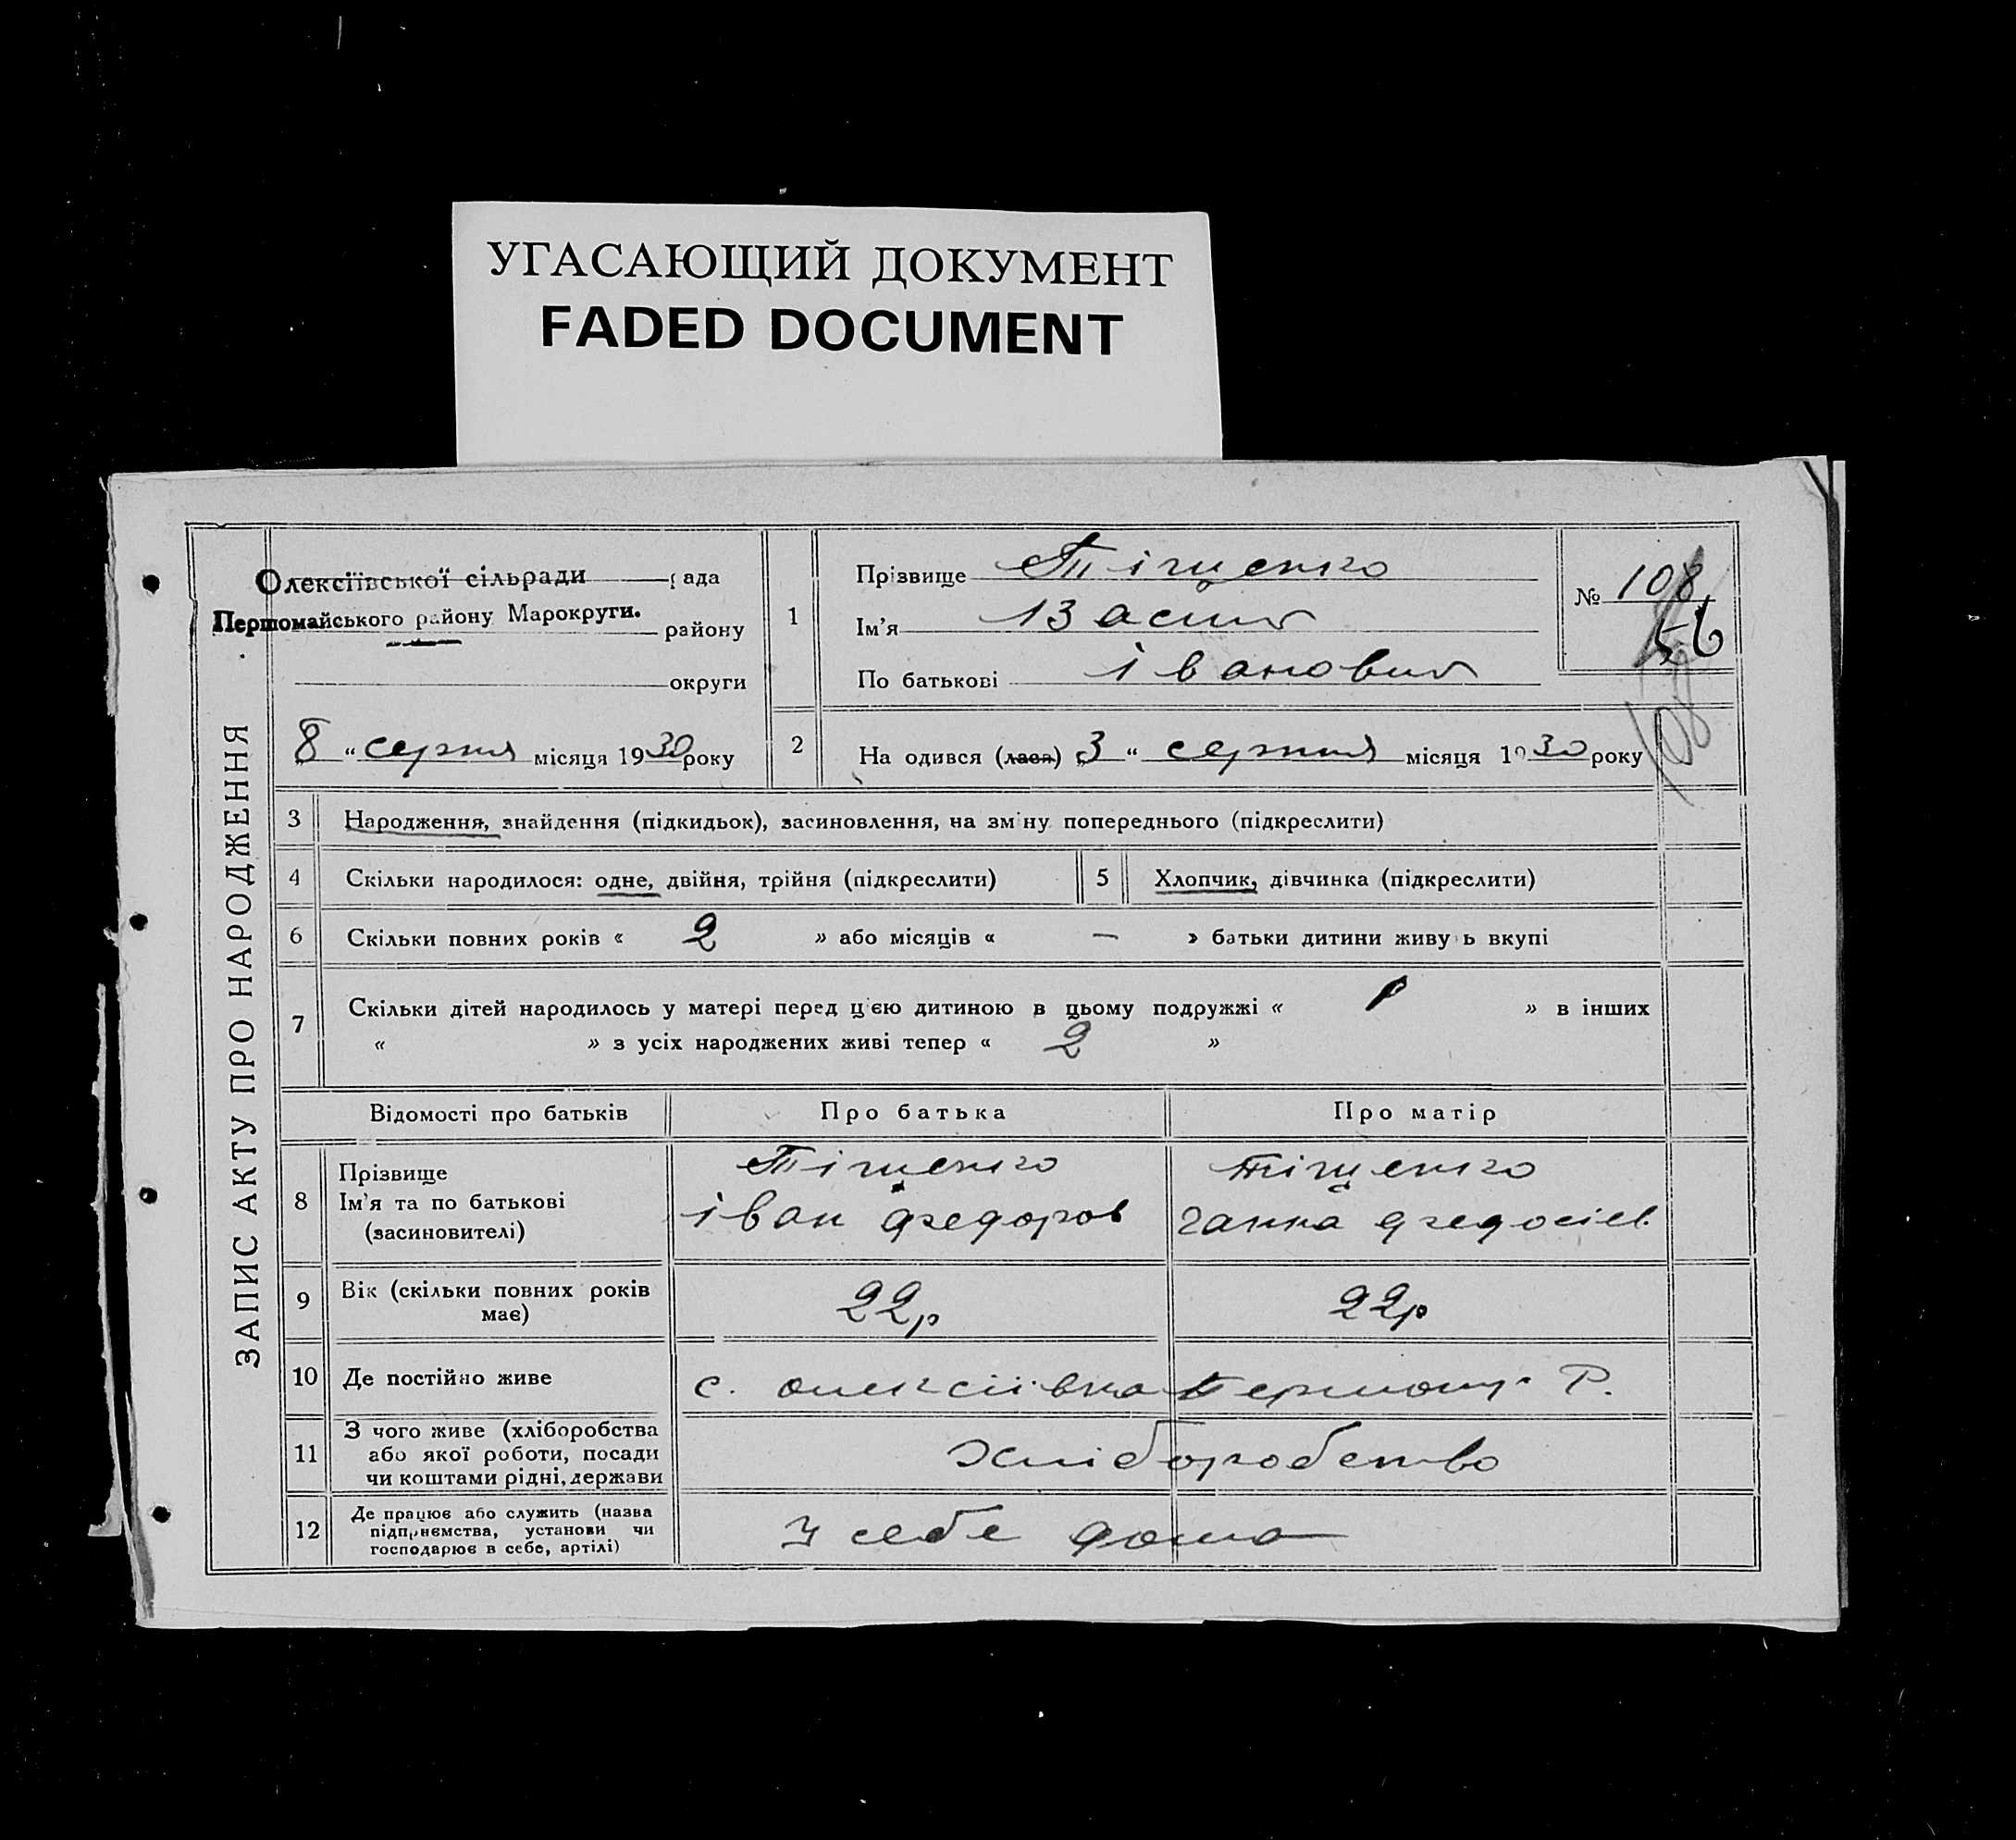 УГАСАЮЩИЙ ДОКУМЕНТ
FADED DOCUMENT
ЗАПИС АКТУ ПРО НАРОДЖЕННЯ
Олексіївської сільради рада
Першомайського району Марокруги. району
округи
8 " серпня місяця 1930 року
1
Прізвище Тіщенко
Ім'я Васил
По батькові івановил
№ 108
56
108
2
На одився (лася) 3 " серпня місяця 1930 року
3 Народження, знайдення (підкидьок), засиновлення, на зміну попереднього (підкреслити)
4 Скільки народилося: одне, двійня, трійня (підкреслити) 5 Хлопчик, дівчинка (підкреслити)
6 Скільки повних років « 2 » або місяців « — » батьки дитини живу ь вкупі
7 Скільки дітей народилось у матері перед ц'єю дитиною в цьому подружжі « 1 » в інших
« » з усіх народжених живі тепер « 2 »
Відомості про батьків Про батька Про матір
8 Прізвище
Ім'я та по батькові
(засиновителі)
Тіщенко
іван федоров
тіщенко
ганна федосієв.
9 Вік (скільки повних років
має)
22р 22р
10 Де постійно живе с. олексіївка Першом. Р.
11 З чого живе (хліборобства
або якої роботи, посади
чи коштами рідні, держави
Хліборобство
12 Де працює або служить (назва
підприємства, установи чи
господарює в себе, артілі)
У себе дома